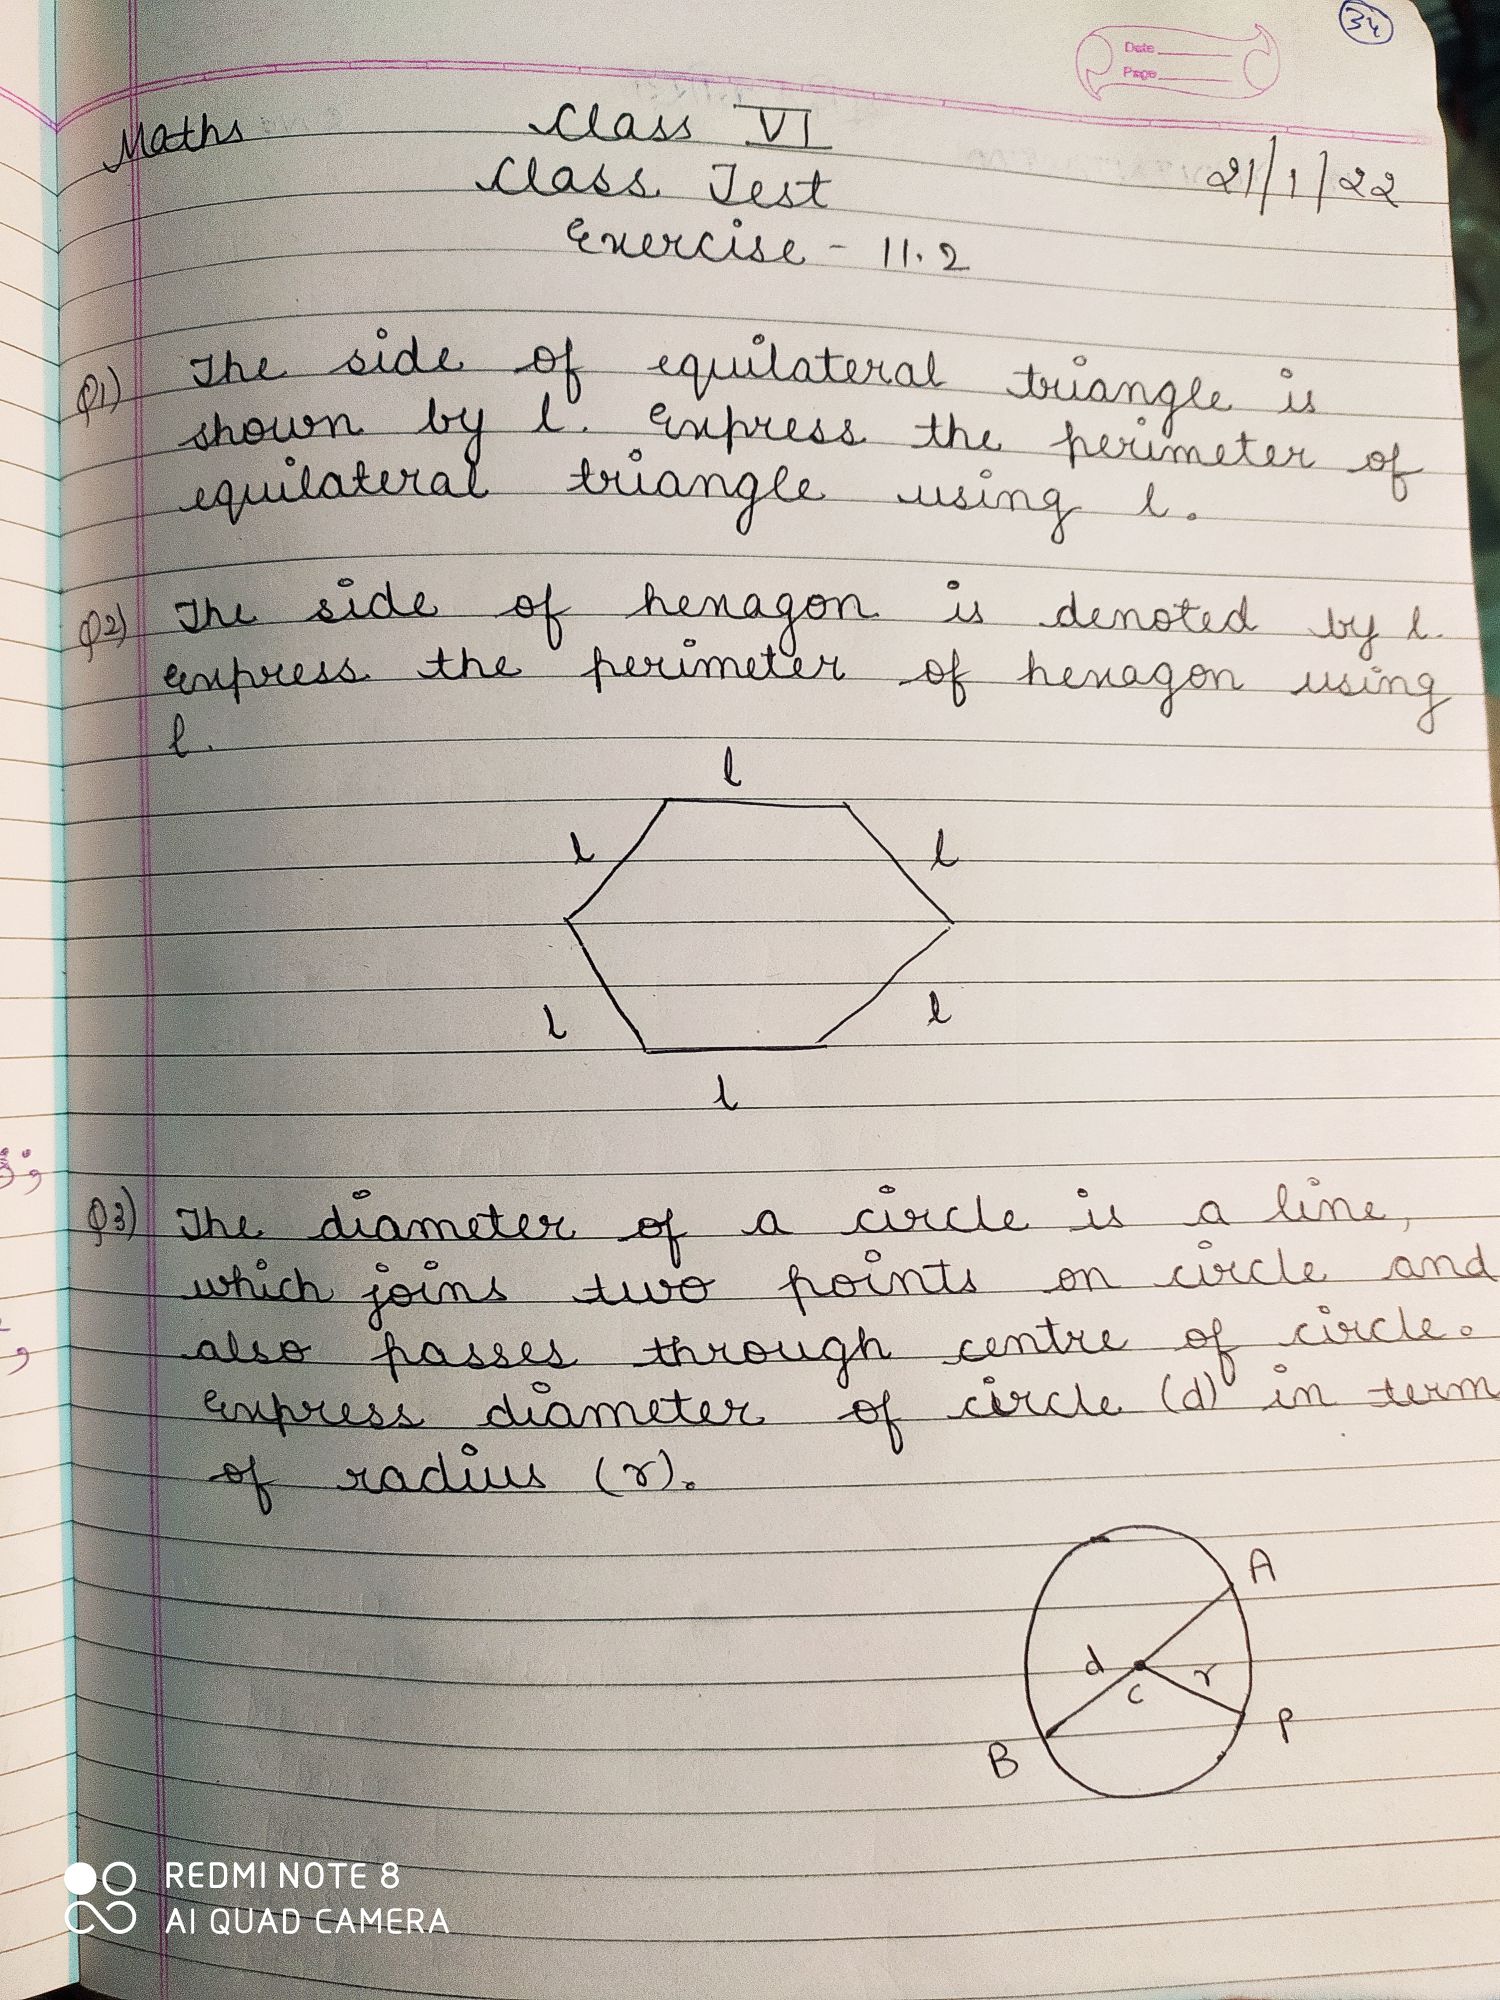 34
Date
Page
Maths
Class VI
Class Test
21/1/22
Exercise - 11.2
Q1) The side of equilateral triangle is
shown by l. Express the perimeter of
equilateral triangle using l.
Q2) The side of hexagon is denoted by l.
Express the perimeter of hexagon using
l.
l
l l
l l
l
Q3) The diameter of a circle is a line,
which joins two points on circle and
also passes through centre of circle.
Express diameter of circle (d) in term
of radius (r).
A
d r
C
P
B
REDMI NOTE 8
AI QUAD CAMERA